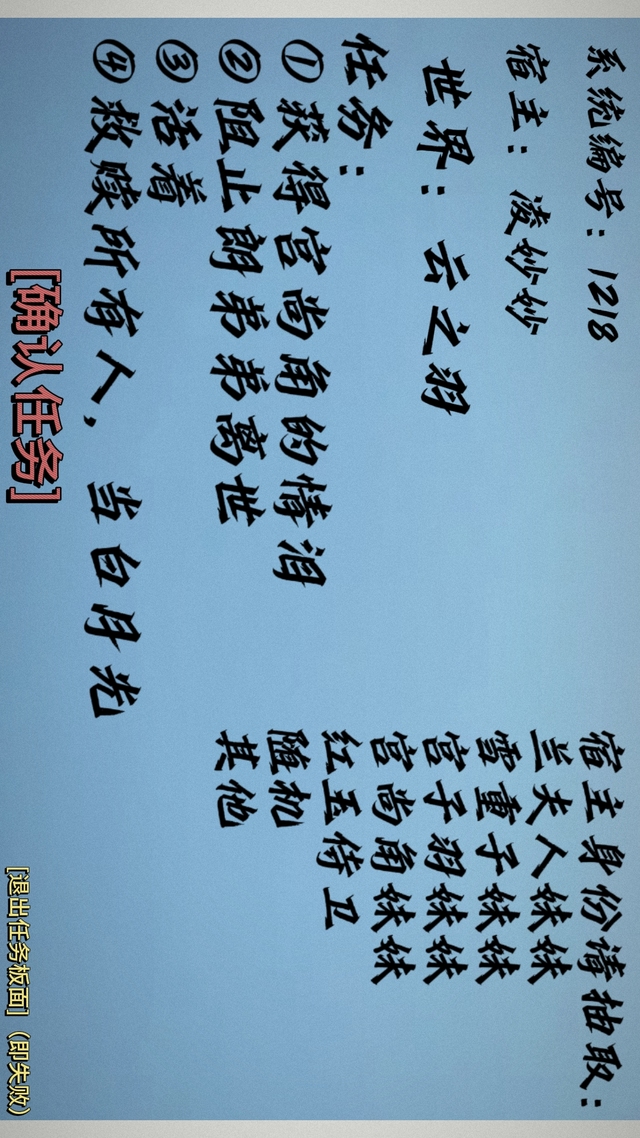 系统编号：1218
宿主：凌妙妙
世界：云之羽
任务：
①获得宫尚角的情泪
②阻止朗弟弟离世
③活着
④救赎所有人，当白月光
[确认任务]
宿主身份请抽取：
兰夫人妹妹
雪重子妹妹
宫子羽妹妹
宫尚角妹妹
红玉侍卫
随机
其他
[退出任务板面]（即失败）